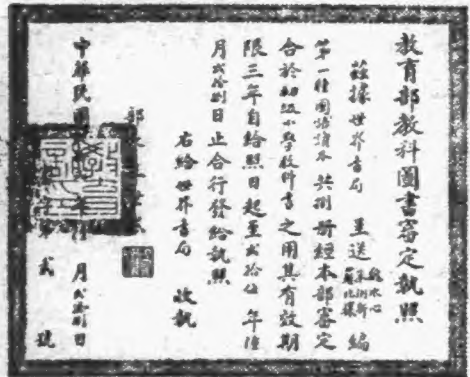 教育部教科圖書審定執照
茲據世界書局呈送 編
第一種國語讀本共捌冊經本部審定
合於初級小學教科書之用其有效期
限三年自給照日起至貳拾伍年陸
月貳拾捌日止合行發給執照
右給世界書局收執
部長
中華民國 年 月貳拾捌日
貳 號